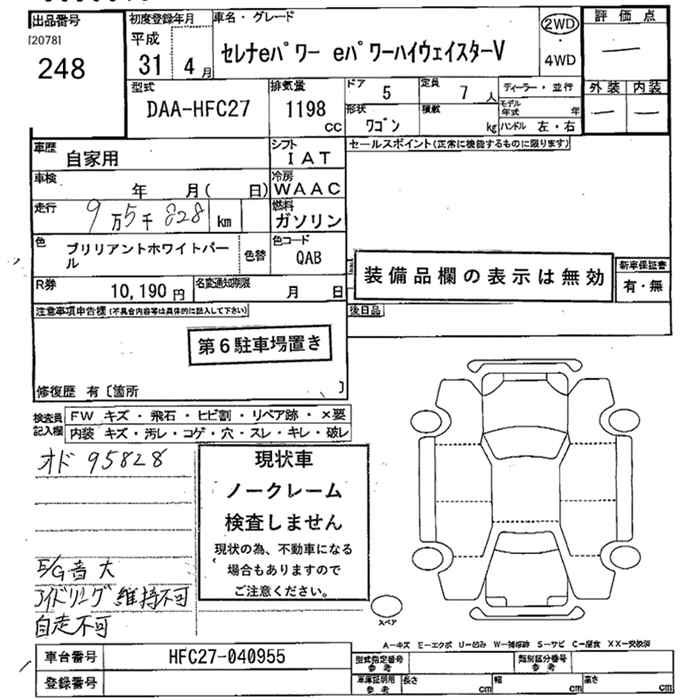 出品番号
[2078]
248
初度登録年月
平成
31 4月
車名・グレード
セレナeパワー eパワーハイウェイスターV
2WD
・
4WD
評価点
―
外装 内装
― ―
型式
DAA-HFC27
排気量
1198
CC
ドア
5
定員
7 人
形状
ワゴン
積載
kg
ディーラー・並行
モデル年式 年
ハンドル 左・右
車歴
自家用
シフト
IAT
セールスポイント(正常に機能するものに限ります)
車検
年 月( 日)
冷房
WAAC
走行
9万5千828 km
燃料
ガソリン
色
ブリリアントホワイトパール
色替
色コード
QAB
装備品欄の表示は無効
新車保証書
有・無
R券
10,190円
名変通知期限
月 日
注意事項申告欄(不具合内容等は具体的に記入して下さい)
後日品
第6駐車場置き
修復歴 有〔箇所 〕
検査員記入欄
FW キズ・飛石・ヒビ割・リペア跡・×要
内装 キズ・汚レ・コゲ・穴・スレ・キレ・破レ
オド 95828
現状車
ノークレーム
検査しません
現状の為、不動車になる
場合もありますので
ご注意ください。
E/G音大
アイドリング維持不可
自走不可
スペア
A―キズ E―エクボ U―凹み W―補修跡 S―サビ C―腐食 XX―交換済
車台番号
HFC27-040955
登録番号
型式指定番号
参考
類別区分番号
参考
車庫証明用
参考
長さ cm
幅 cm
高さ cm